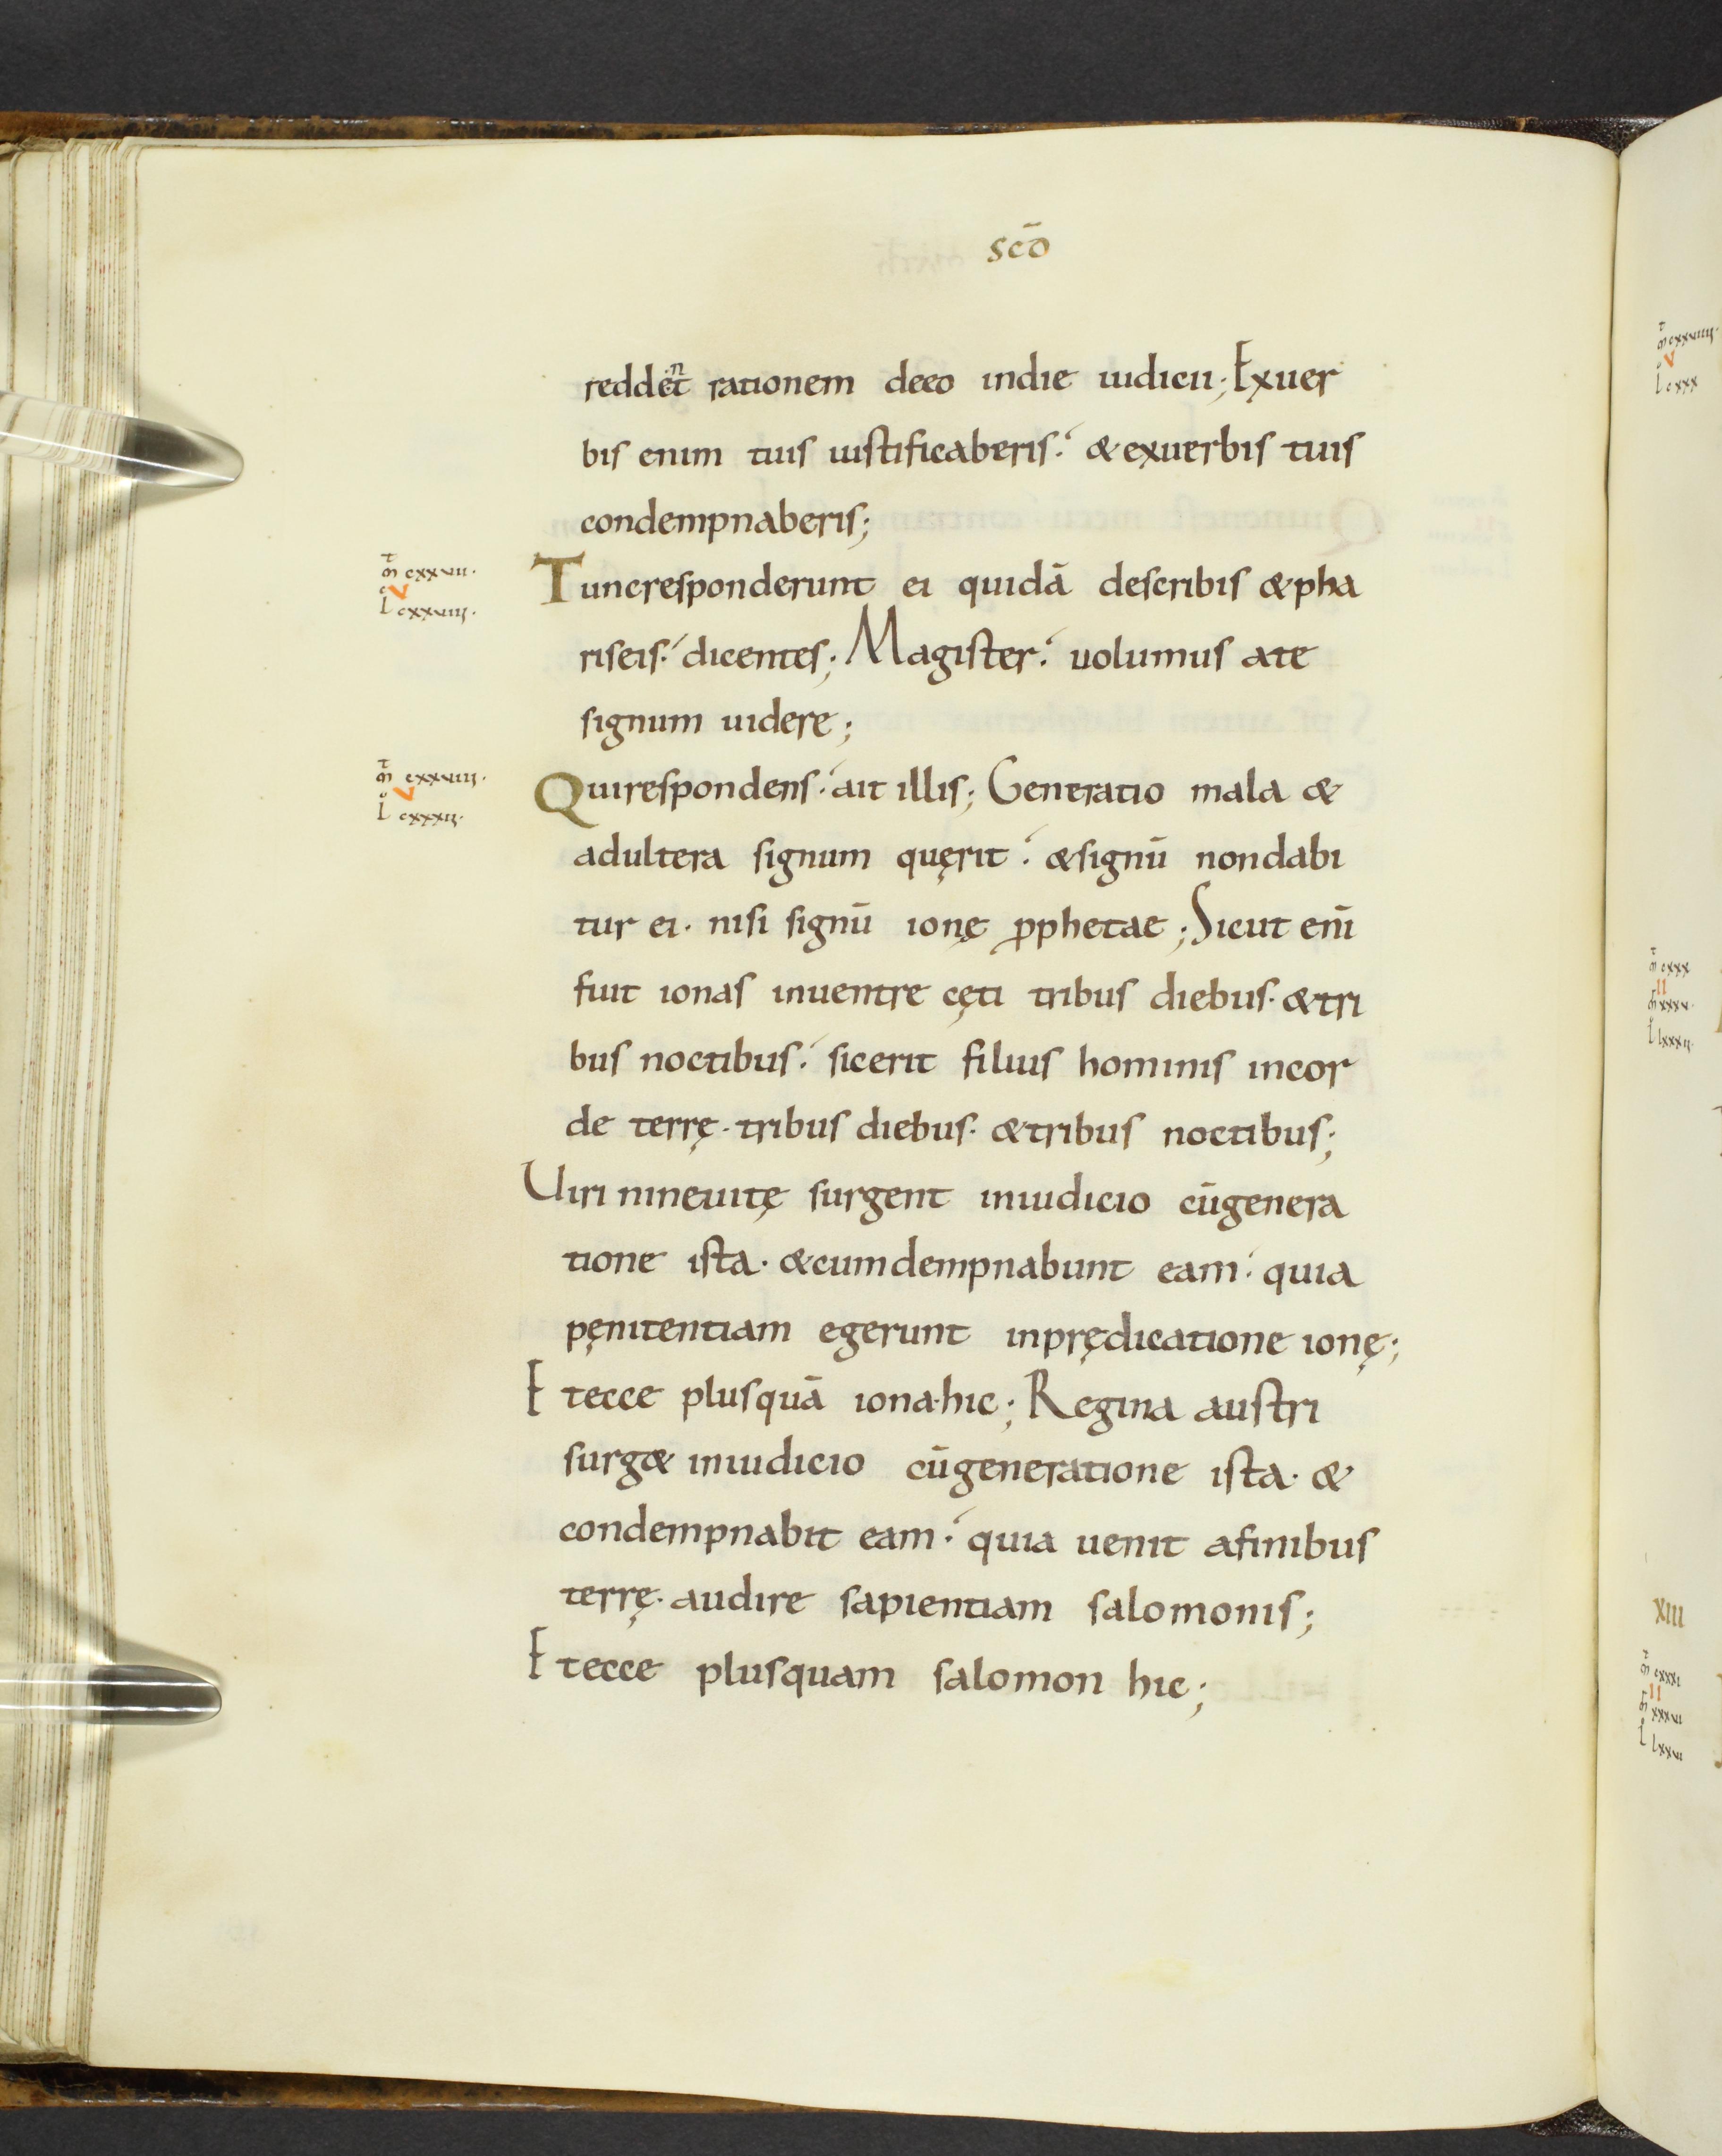 scō
reddent rationem deeo indie iudicii; Exuer
bis enim tuis iustificaberis. &exuerbis tuis
condempnaberis;
mt cxxvii.
v
L cxxviiii.
Tuncresponderunt ei quidā describis &pha
riseis. dicentes; Magister. uolumus ate
signum uidere;
mt cxxviii.
v
L cxxxii.
Quirespondens. ait illis; Generatio mala &
adultera signum quęrit. &signū nondabi
tur ei. nisi signū ionę ꝓphetae; Sicut eni̅
fuit ionas inuentre cęti tribus diebus. &tri
bus noctibus. sicerit filius hominis incor
de terrę. tribus diebus. &tribus noctibus;
Uiri nineuitę surgent iniudicio cūgenera
tione ista. &cumdempnabunt eam. quia
pęnitentiam egerunt inprędicatione ionę;
Etecce plusquā iona.hic; Regina austri
surg& iniudicio cūgeneratione ista. &
condempnabit eam. quia uenit afinibus
terrę. audire sapientiam salomonis;
Etecce plusquam salomon hic;
mt cxxviiii.
v
L cxxx
mt cxxx
II
xxxv.
L lxxxii.
XIII
mt cxxxi
II
xxxvi
L lxxvi